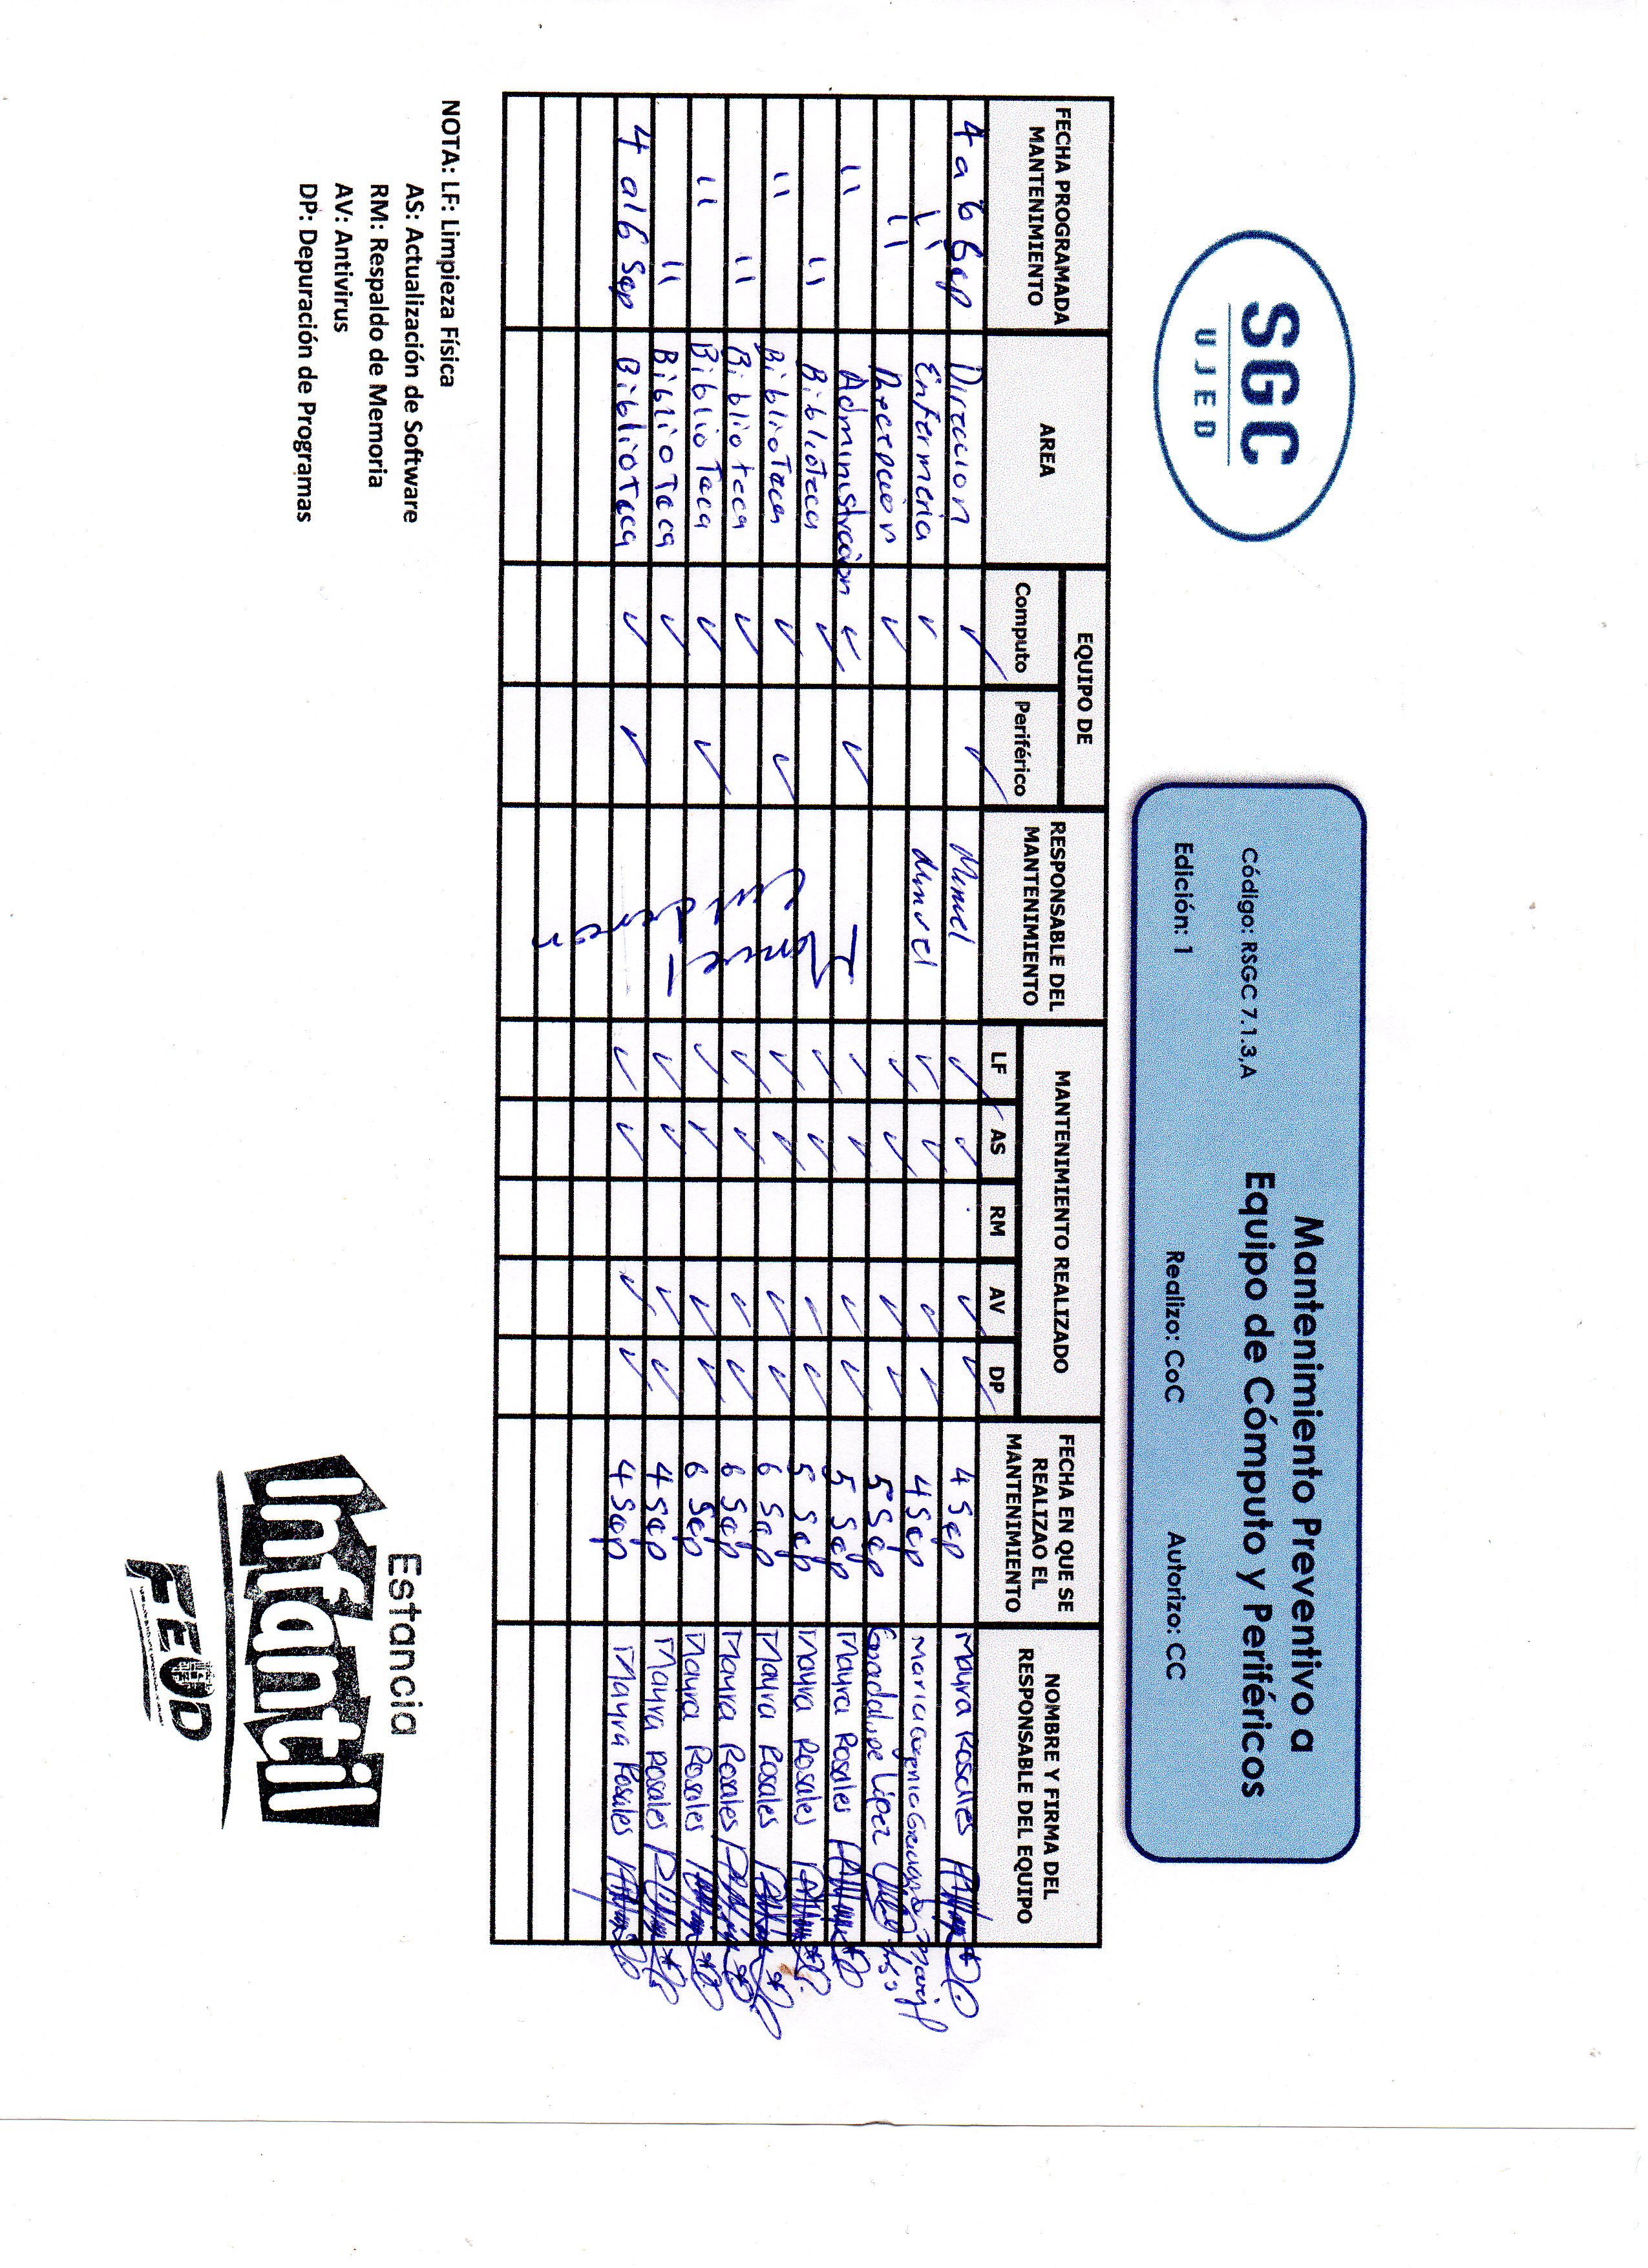 SGC
UJED
Mantenimiento Preventivo a
Equipo de Cómputo y Periféricos
Código: RSGC 7.1.3,A
Edición: 1 Realizo: CoC Autorizo: CC
FECHA PROGRAMADA MANTENIMIENTO AREA EQUIPO DE Computo Periférico RESPONSABLE DEL MANTENIMIENTO MANTENIMIENTO REALIZADO LF AS RM AV DP FECHA EN QUE SE REALIZAO EL MANTENIMIENTO NOMBRE Y FIRMA DEL RESPONSABLE DEL EQUIPO
4 a 6 Sep Direccion ✓ ✓ Manuel ✓ ✓ ✓ ✓ 4 Sep Mayra Rosales
" Enfermeria ✓ Manuel ✓ ✓ ✓ ✓ 4 Sep Maria
" Recepcion ✓ ✓ ✓ ✓ ✓ 5 Sep Guadalupe López
" Administración ✓ ✓ ✓ ✓ ✓ ✓ 5 Sep Mayra Rosales
" Biblioteca ✓ Manuel ✓ ✓ ✓ ✓ 5 Sep Mayra Rosales
" BiblioTeca ✓ ✓ ✓ ✓ ✓ ✓ 6 Sep Mayra Rosales
" Biblioteca ✓ ✓ ✓ ✓ ✓ 6 Sep Mayra Rosales
" BiblioTeca ✓ ✓ ✓ ✓ ✓ ✓ 6 Sep Mayra Rosales
" BiblioTeca ✓ ✓ ✓ ✓ ✓ 4 Sep Mayra Rosales
4 al 6 Sep BiblioTeca ✓ ✓ ✓ ✓ ✓ ✓ 4 Sep Mayra Rosales
NOTA: LF: Limpieza Física
AS: Actualización de Software
RM: Respaldo de Memoria
AV: Antivirus
DP: Depuración de Programas
Estancia
Infantil
FEUD